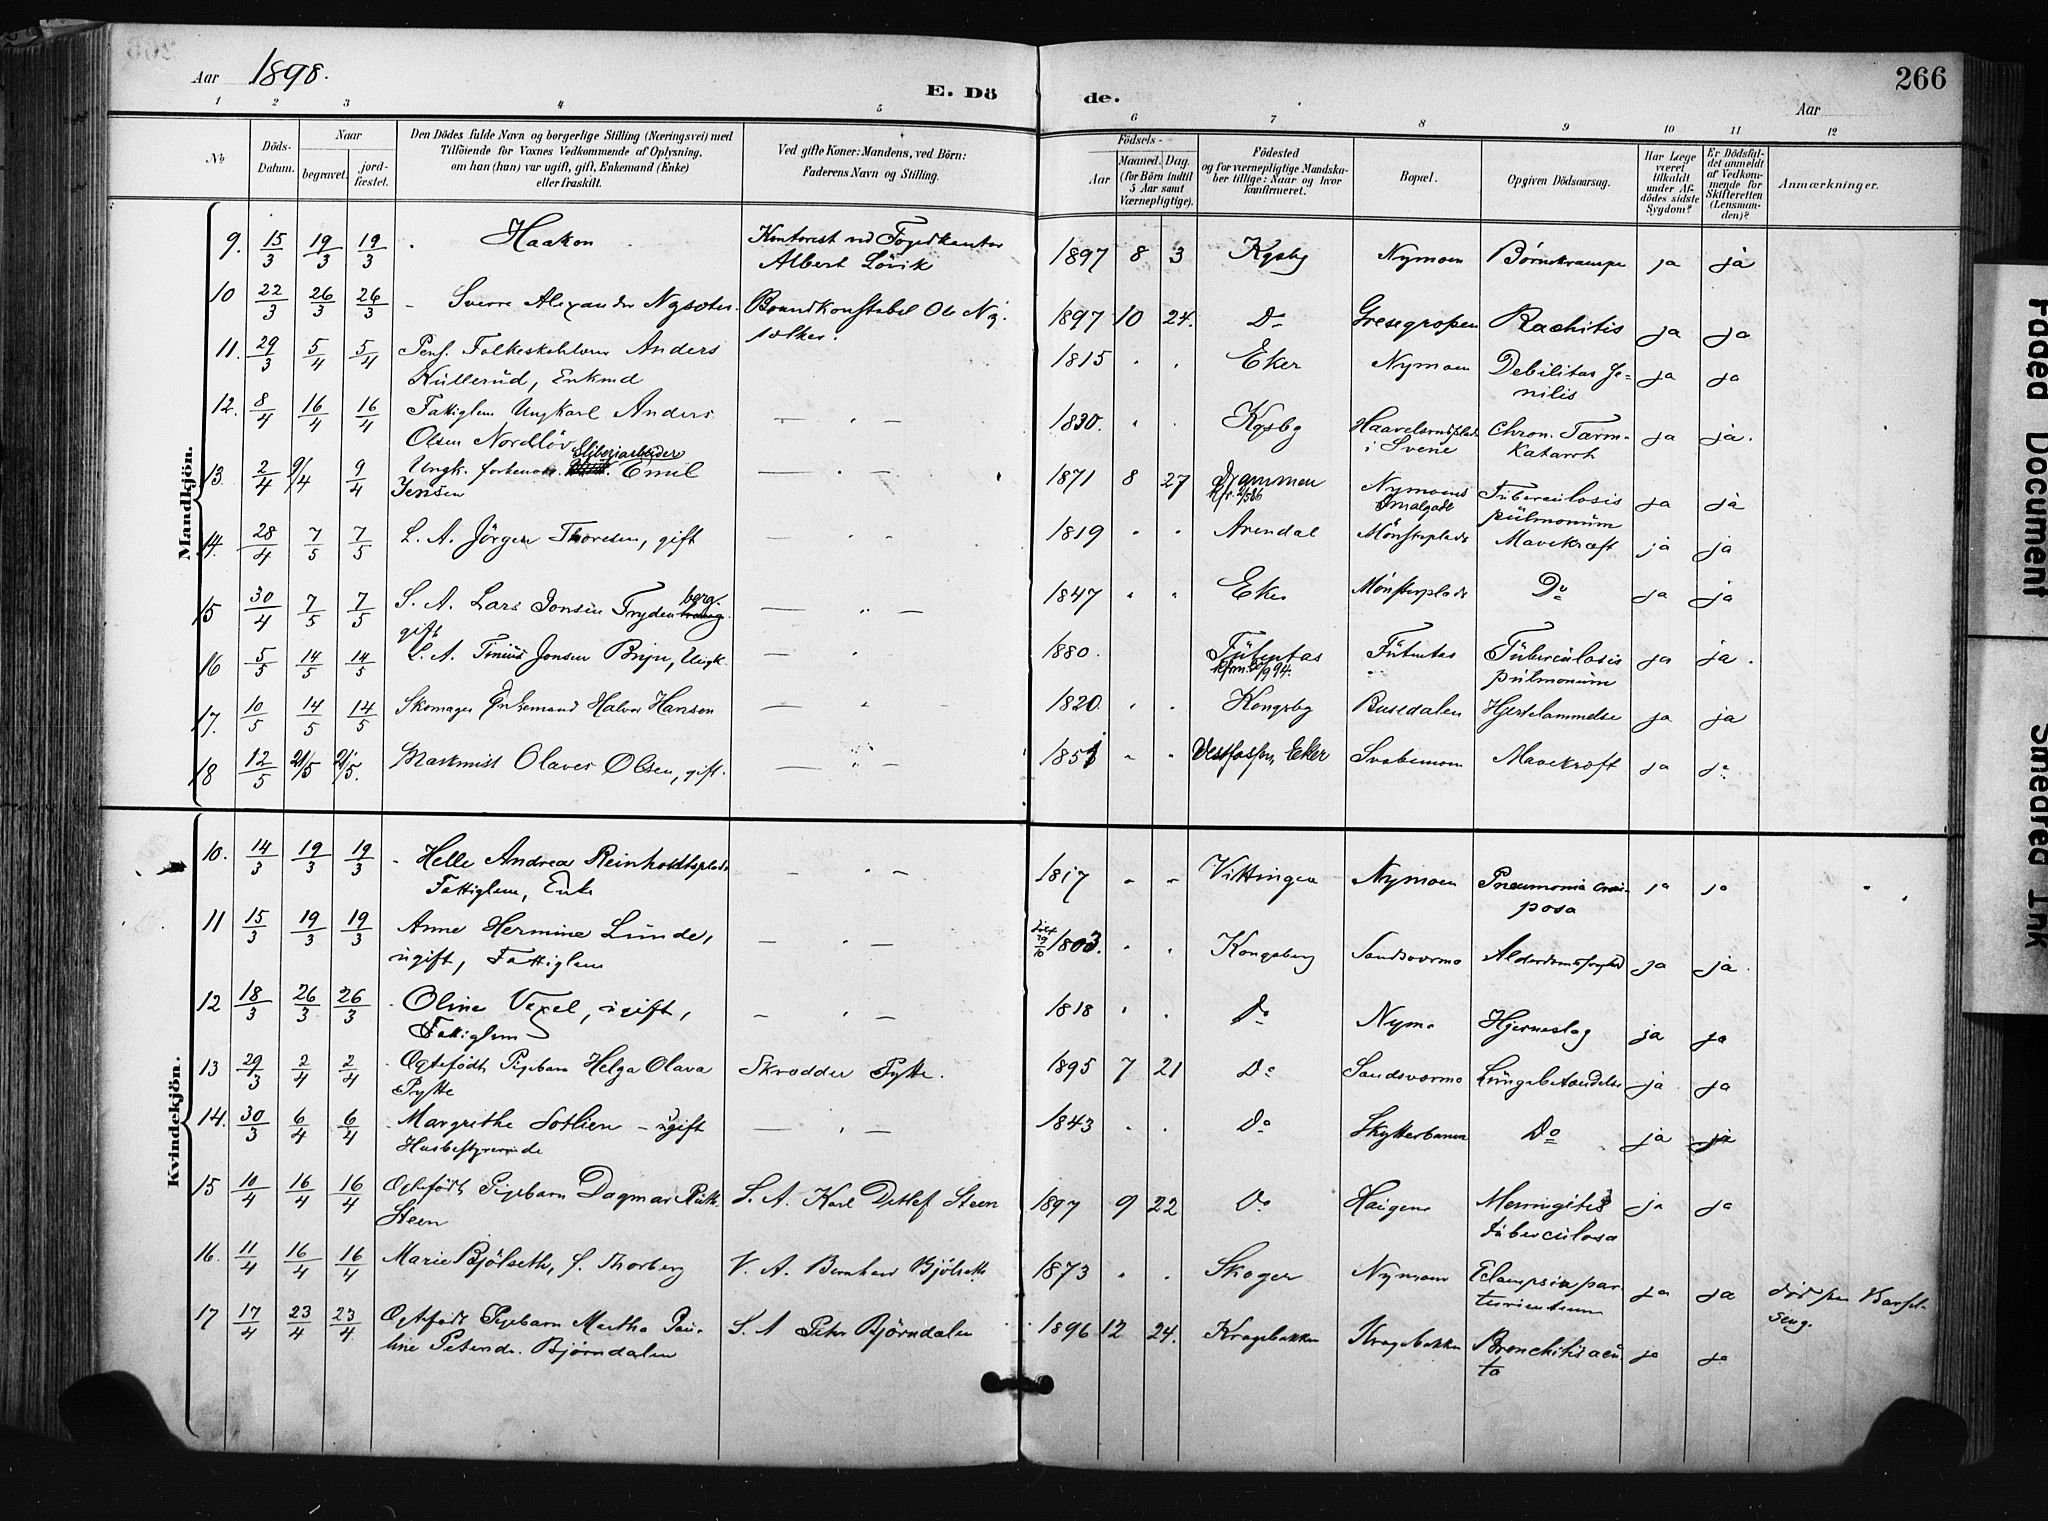 266
Aar 1898.
E. Dö de.
Aar
1 2 3 4 5 6 7 8 9 10 11 12
No
Döds-Datum.
Naar
begravet.
jord-fæstet.
Den Dödes fulde Navn og borgerlige Stilling (Næringsvei) med
Tilföiende for Voxnes Vedkommende af Oplysning,
om han (hun) var ugift, gift, Enkemand (Enke)
eller fraskilt.
Ved gifte Koner: Mandens, ved Börn:
Faderens Navn og Stilling.
Födsels-
Aar
Maaned. Dag.
(for Börn indtil
5 Aar samt
Værnepligtige).
Födested
og for værnepligtige Mandska-
ber tillige: Naar og hvor
konfirmeret.
Bopæl.
Opgiven Dödsaarsag.
Har Læge
været
tilkaldt
under Af-
dödes sidste
Sygdom?
Er Dödsfal-
det anmeldt
af Vedkom-
mende for
Skifteretten
(Lensman-
den)?
Anmærkninger.
Mandkjön.
9. 15/3 19/3 19/3 Haakon Kontorist ved Fogedkontor 1897 8 3 Kgsbg Nymoen Børnekrampe ja ja
Albert Lövik
10 22/3 26/3 26/3 Sverre Alexander Brandkonstabel Ole Ny- 1897 10 24. Do Rachitis ja ja
11. 29/3 5/4 5/4 Pens. Folkeskolelærer Anders 1815 Eker Nymoen Debilitas se- ja ja
Kullerud, Enkmd nilis
12. 8/4 16/4 16/4 Fattiglem Ungkarl Anders 1830. Kgsbg Chron. Tarm- ja ja.
Olsen Nordlöv i Svene Katarrh
13. 2/4 9/4 9/4 Ungk. Emil 1871 8 27 Drammen Nymoens Tuberculosis ja ja
Jensen Smalgade pulmonum
14. 28/4 7/5 7/5 L. A. Jörgen Thoresen, gift 1819 Arendal Mønsterplads Mavekræft ja ja
15 30/4 7/5 7/5 S. A. Lars Jonsen Frydenberg. 1847 Eker Mønsterplads Do ja ja
gift
16 5/5 14/5 14/5 L. A. Jonsen Ungk. 1880. Tuberculosis ja ja.
pulmonum
17. 10/5 14/5 14/5 Skomager Enkemand Halvor Hansen 1820. Kongsbg Hjertelammelse ja ja
18 12/5 21/5 21/5. Olaves Olsen, gift. 1851 Vestfossen, Eker Svabemoen Mavekræft ja ja
Kvindekjön.
10. 14/3 19/3 19/3 Helle Andrea Reinholdtsplads 1817 Vittingen Nymoen Pneumonia crou- ja ja
Fattiglem, Enke posa
11 15/3 19/3 19/3 Anne Hermine Lunde, 1803. Kongsberg Sandsværmo ja ja.
ugift, Fattiglem
12 18/3 26/3 26/3 Oline Vexel, ugift, 1818 Do Nymo Hjerneslag ja ja
Fattiglem
13 29/3 2/4 2/4 Ogtefødt Pigebarn Helga Olava Skrædder Pytte. 1895 7 21 Do Sandsværmo Lungebetændelse ja ja
Pytte
14. 30/3 6/4 6/4 Margrethe Sotlien – ugift 1843 Do Skytterbanen Do ja ja
Husbestyrerinde
15 10/4 16/4 16/4 Ogtefødt Pigebarn Dagmar Ruth S. A. Karl Detlef Steen 1897 9 22 Do Meningitis ja ja
Steen tuberculosa
16. 11/4 16/4 16/4 Marie Bjölseth, f. Thorberg V. A. Bernhard Bjölseth 1873 Skoger Nymoen Eclampsia par- ja ja død paa Barsel-
turientium seng.
17 17/4 23/4 23/4 Ogtefødt Pigebarn Martha Pau- S. A Peter Bjørndalen 1896 12 24. Kragebakken Kragebakken Bronchitis acu- ja ja
line Petersdr. Bjørndalen ta
Faded Document
Smeared Ink